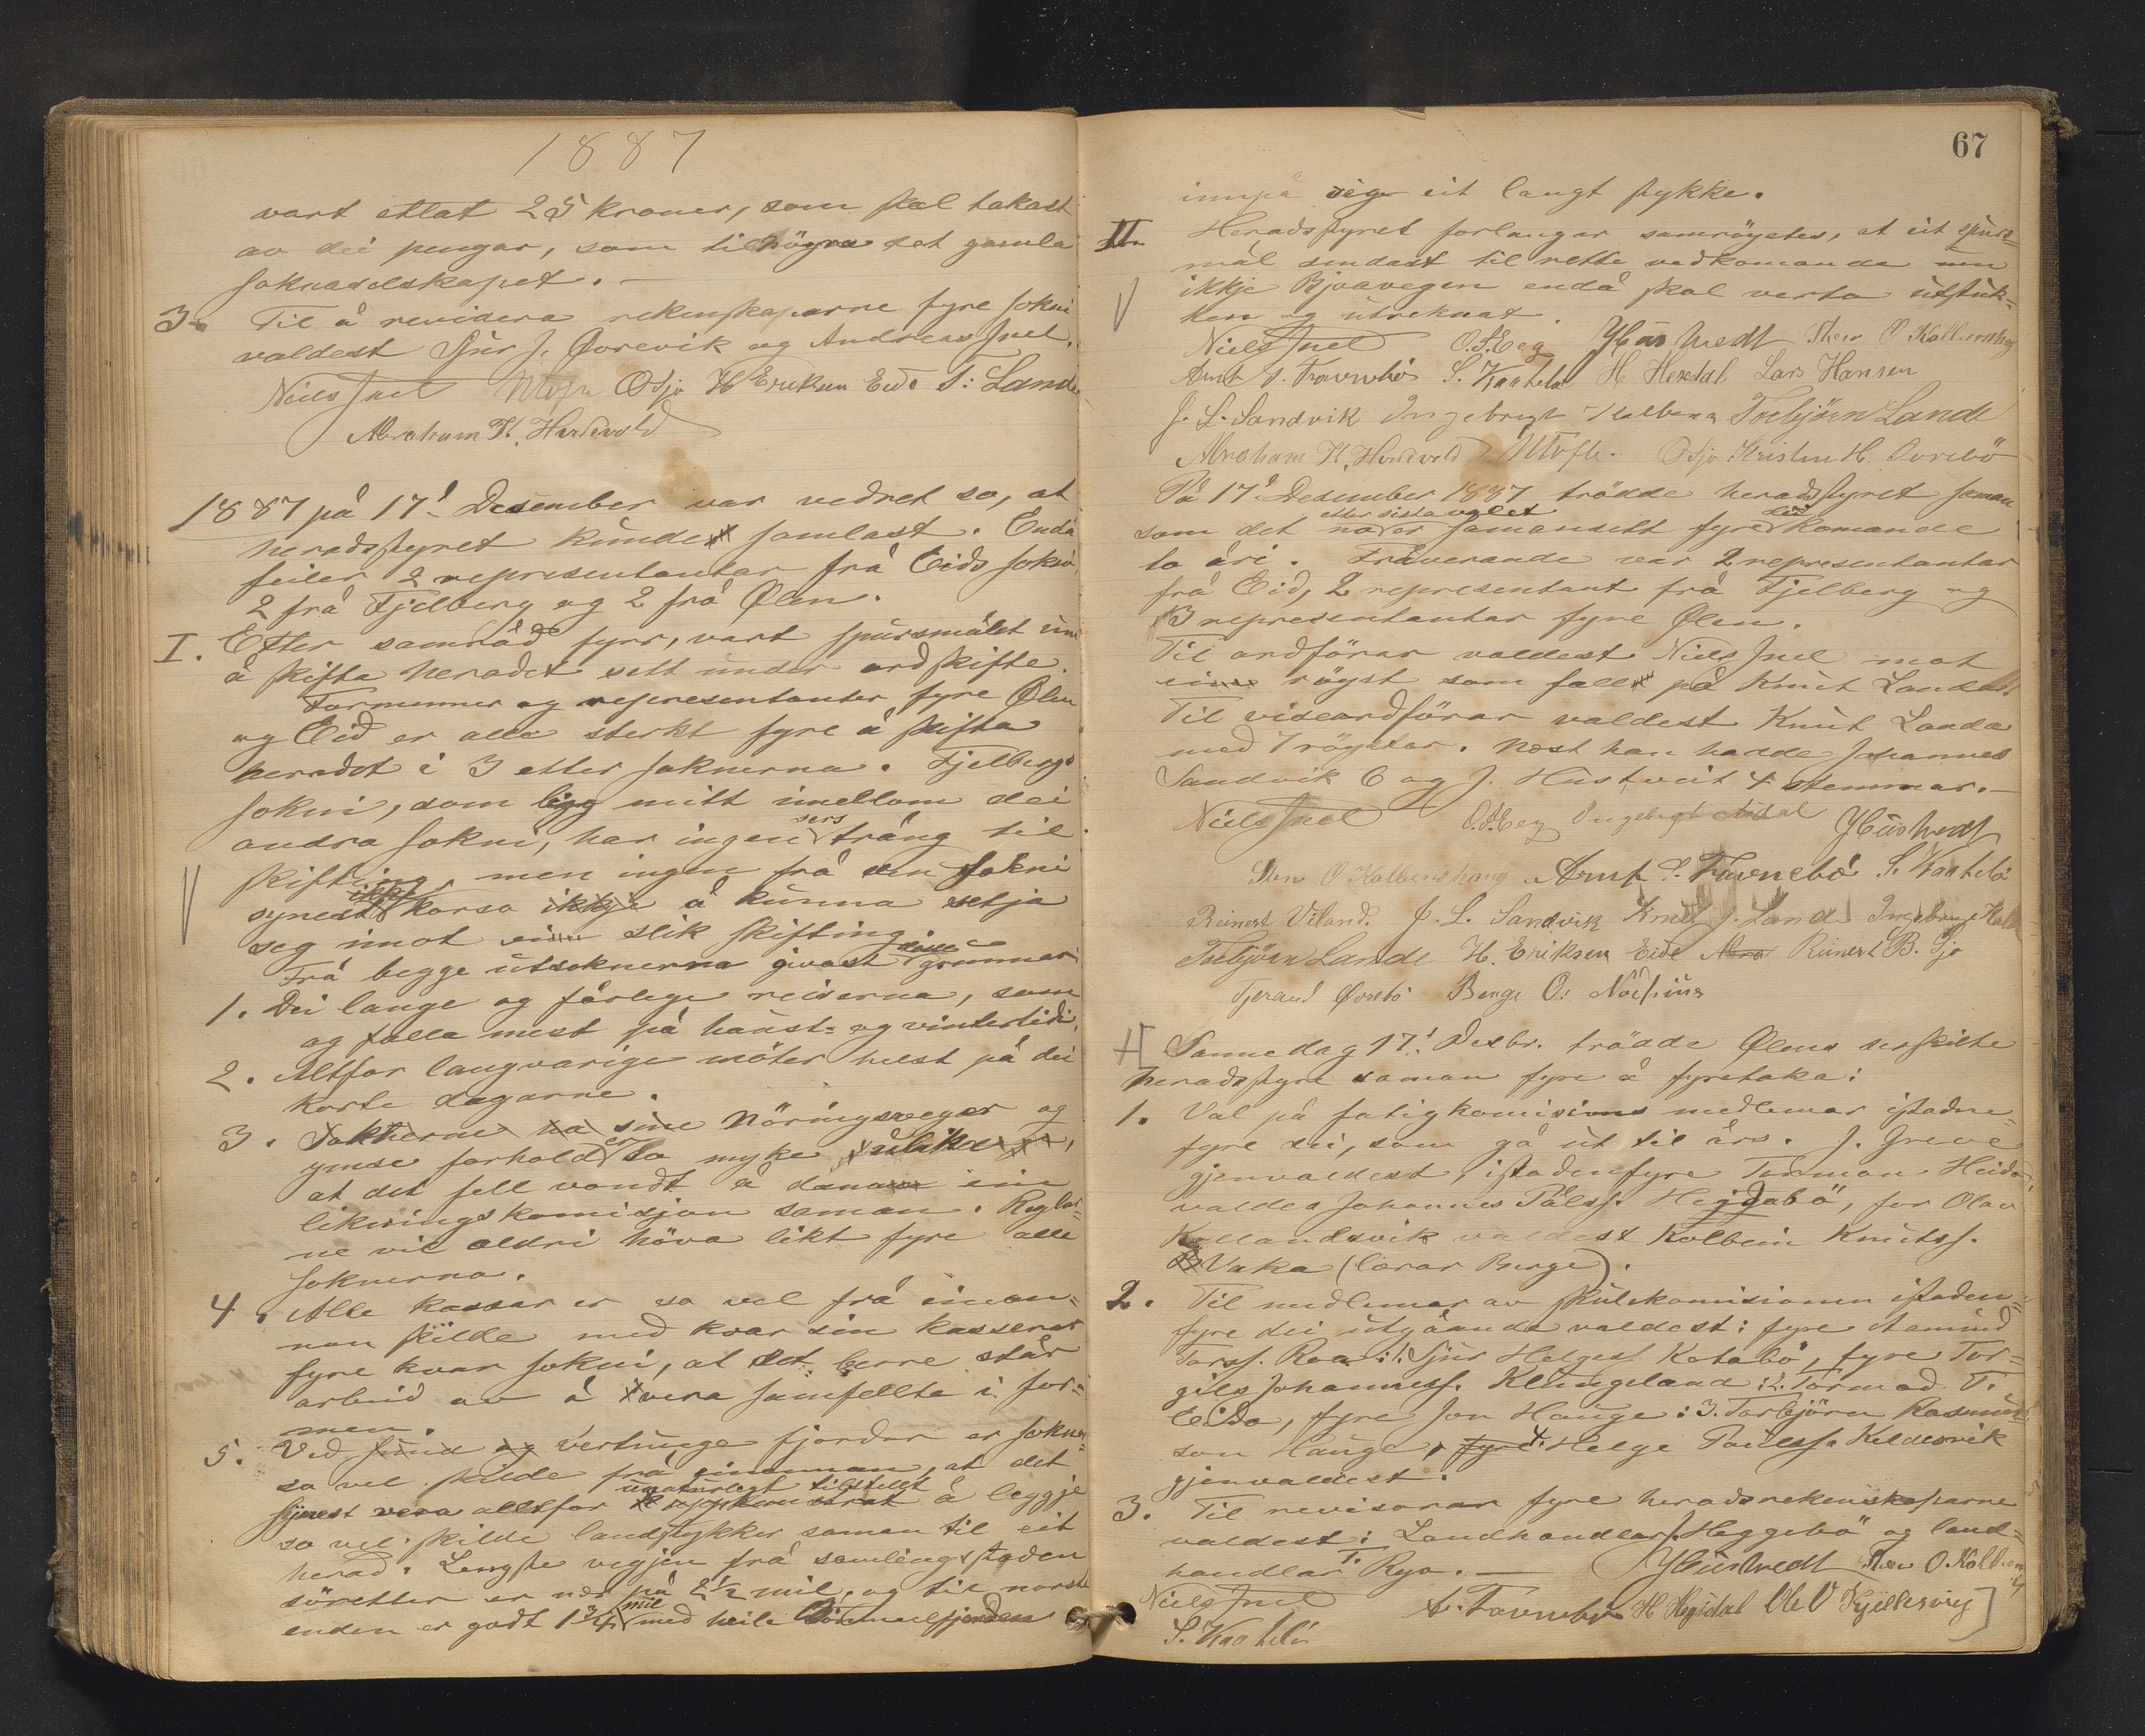 1887
vart etlat 25 kroner, som skal takast
av dei pengar, som tilhöyra det gamla
soknaselskapet. —
3. Til å revidera rekenskaparne fyre sokni
valdest Sjur J. Øvrevik og Andreas Juel.
Niels Juel Utöfte O Sjo H Eriksen Eide T. Lande
Abraham K. Hundevold
1887 på 17d Desember var vedret so, at
heradstyret kunde samlast. Endå
feiler 2 representantar frå Eids sokn,
2 frå Fjelberg og 2 frå Ølen.
I. Etter samråd fyrr, vart spursmålet um
å skifta heradet sett under ordskifte.
Formenner og representanter fyre Ølen
og Eid er alle sterkt fyre å skifta
heradet i 3 etter soknerna. Fjelbergs
sokni, som ligg mitt imellom dei
andra sokni, har ingen sers trång til
skifting, men ingen frå den sokni
synest ikkje korso ikkje å kunna setja
seg imot ein slik skifting.
Frå begge utsoknerna givast disse grunnar:
1. Dei lange og fårlege reiserna, som
og falla mest på haust- og vintertidi.
2. Altfor langvarige möter helst på dei
korte dagarne.
3. Soknerne ha sine Näringsvegar og
ymse forhold er so myke ulike,
at det fell vondt å danna ein
likningskomisjon saman. Reglar-
ne vil aldri höva likt fyre alle
soknerna.
4. Alle kassar er so vel frå einan-
nan skilde med kvar sin kasserar
fyre kvar sokni, at det berre står
arbeid av å vera samfellte i for-
men.
5. Ved sund og vertunge fjordar er sokner
so vel skilde frå einannan, at det
synest vera alltfor unaturlegt tilstellt å leggje
so vel skilde landstykker saman til eit
herad. Lengste vegjen frå samlingstaden
söretter er nær på 2½ mil, og til norste
enden er godt 1¾ mil med heile Ølmedfjorden
67
innpå sig eit langt stykke.
II. Heradstyret forlangar samröystes, at eit spurs-
mål sendast til rette vedkomande um
ikkje Bjoavegen endå skal verta utstuk-
ken og utreknat.
Niels Juel O.S. Eeg J Hustvedt Sten O Kolbenshaug
Arnt S. Tavnebö S. Kaatebö H Hersdal Lars Hansen
J. L. Sandvik Ingebrigt Halbern Torbjörn Lande
Abraham K. Hundevold Utöfte. O Sjo Kristen H. Øvrebö
På 17d Desember 1887 trödde heradstyret saman
som det no etter sista valet er samansett fyre dei komande
to åri. Fråverande var 2 representantar
frå Eid, 2 representant frå Fjelberg og
3 representantar fyre Ølen.
Til ordförar valdest Niels Juel mot
eine röyst som fall på Knut Landa.
Til viseordförar valdest Knut Landa
med 7 röyster. Næst han hadde Johannes
Sandvik 6 og J. Hustveit 4 stemmer. —
Niels Juel O.S. Eeg Ingebrigt J Hustvedt
Sten O Kolbenshaug Arnt S. Tavnebö S. Kaatebö
Reinert Viland. J. L. Sandvik Knut J. Lande Ingebrigt
Torbjörn Lande H. Eriksen Eide Reinert B. Sjo
Tjerand Øvrebö Benge O.
Sammedag 17d Desbr. trödde Ølens serskilte
heradstyre saman fyre å fyretaka:
1. Val på fatigkomisions medlemar istaden-
fyre dei, som gå ut til års. J. Greve
gjenvaldest, istadenfyre Tormon Heida
valdes Johannes Pålss. Heggebö, for Olav
Kallandsvik valdest Kolbein Knutss.
Vaka (lærar Berge).
2. Til medlemar av skulekomisionen istaden-
fyre dei utgåande valdest: fyre Åmund
Torss. Roa: 1. Sjur Helgess Kotabö, fyre Tor-
gils Johanness. Klungeland: 2. Tormod T.
Eide, fyre Jon Hauge: 3. Torbjörn Rasmus-
son Hauge, fyre 4. Helge Paulss. Kildesvik
gjenvaldest.
3. Til revisorar fyre heradsrekenskaparne
valdest: Landhandlar J. Heggebö og land-
handlar T. Ryo. — J Hustvedt Sten O. Kolbenshaug
Niels Juel A. Tavnebö H Hersdal Ole O Kjillesvig
S. Kaatebö